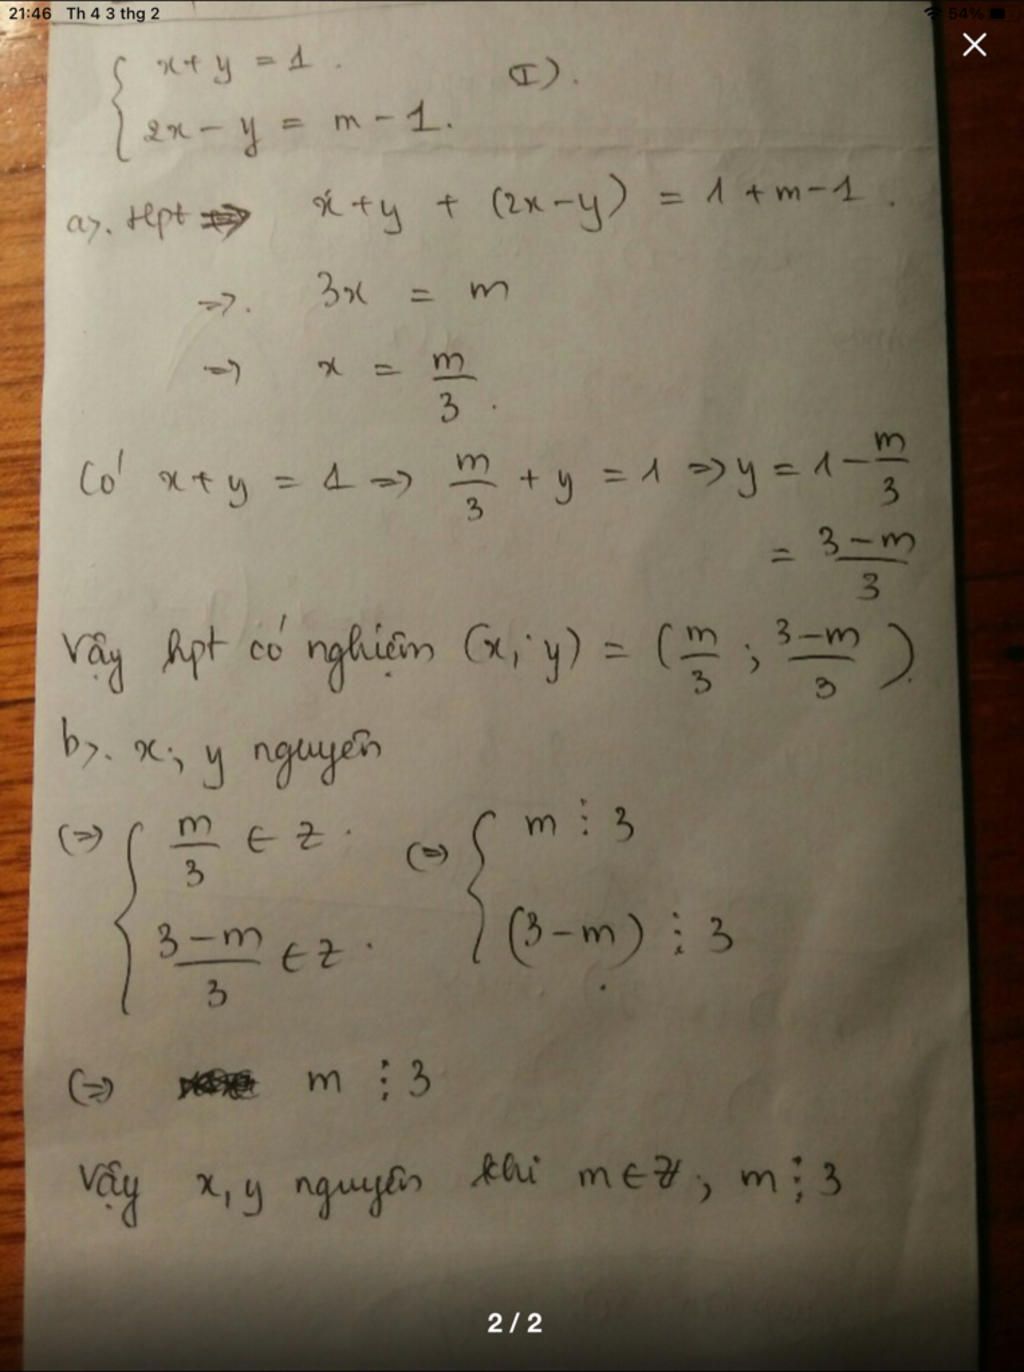 21:46 Th 4 3 thg 2
54%
x + y = 1.
(I).
2x - y = m - 1.
a>. Hpt => x + y + (2x - y) = 1 + m - 1.
=>. 3x = m
=> x = m/3.
Có x + y = 1 => m/3 + y = 1 => y = 1 - m/3
= 3 - m/3
Vậy hpt có nghiệm (x; y) = (m/3; 3 - m/3).
b>. x; y nguyên
(=> { m/3 ∈ Z. (=> { m ⋮ 3
3 - m/3 ∈ Z. (3 - m) ⋮ 3
(=> m ⋮ 3
Vậy x, y nguyên khi m ∈ Z; m ⋮ 3
2 / 2